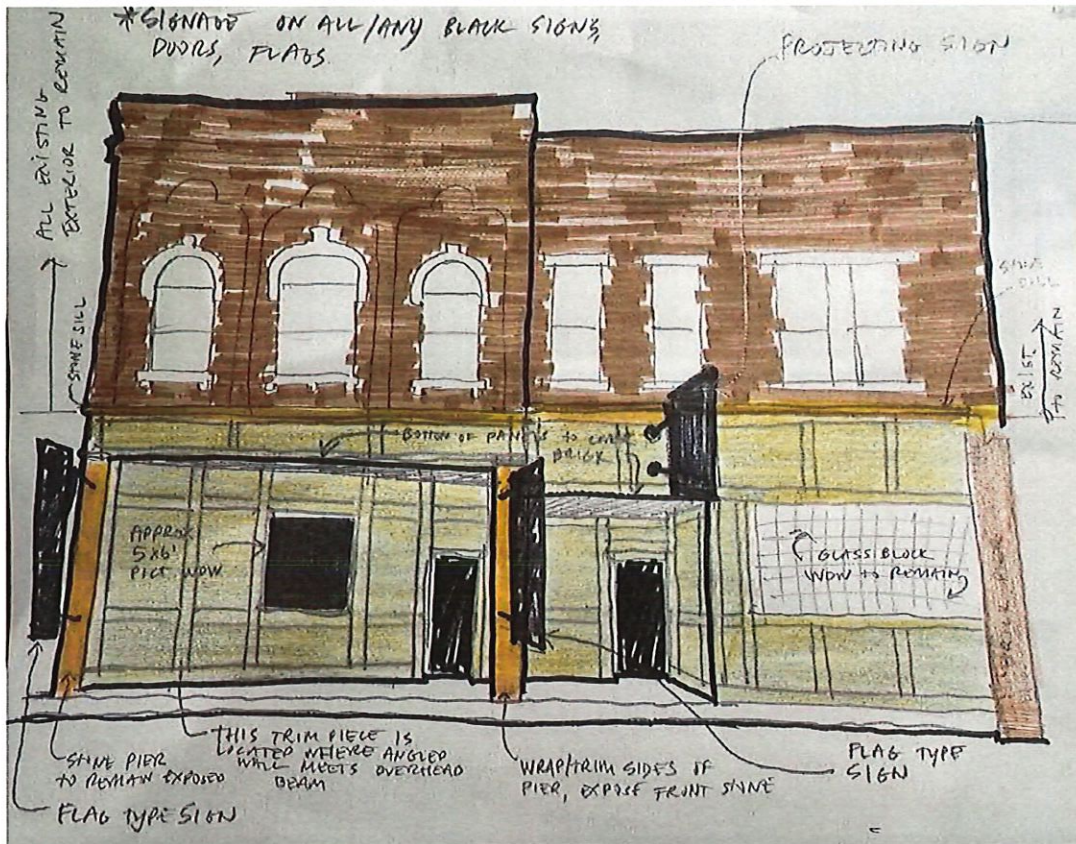 *SIGNAGE ON ALL/ANY BLACK SIGNS,
DOORS, FLAGS.
PROJECTING SIGN
ALL EXISTING
EXTERIOR TO REMAIN
STONE SILL
STONE
SILL
EXIST.
TO REMAIN
BOTTOM OF PANELS TO
BRICK
APPROX
5x6'
PICT. WDW
GLASS BLOCK
WDW TO REMAIN
STONE PIER
TO REMAIN EXPOSED
FLAG TYPE SIGN
THIS TRIM PIECE IS
LOCATED WHERE ANGLED
WALL MEETS OVERHEAD
BEAM
WRAP/TRIM SIDES OF
PIER, EXPOSE FRONT STONE
FLAG TYPE
SIGN